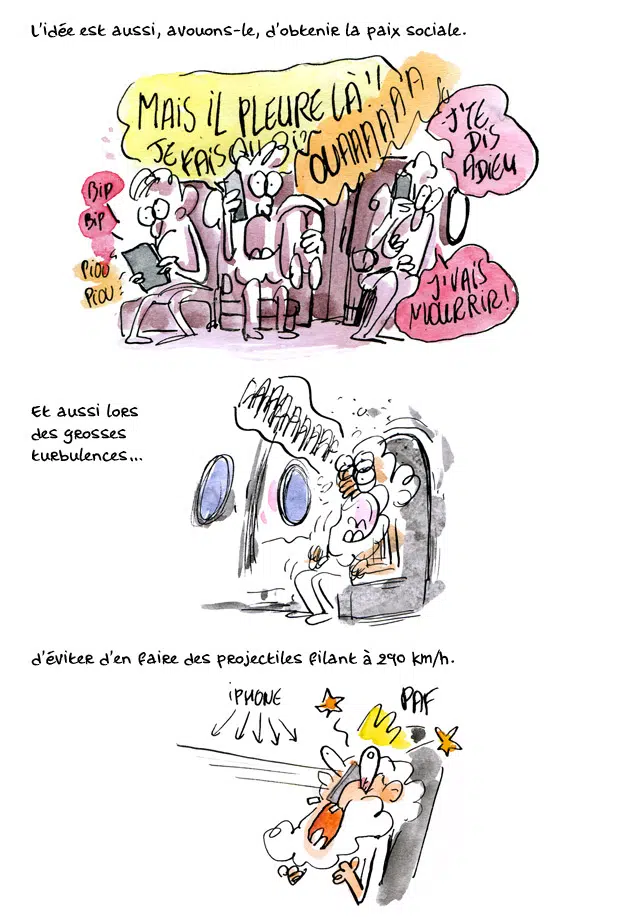 L'idée est aussi, avouons-le, d'obtenir la paix sociale.
MAIS iL PLEURE LÀ !!
JE FAIS
OUAAAAAAA
J'TE
DIS
ADIEU
BiP
BiP
PiOU
PiOU
J'VAIS
MOURRIR!
Et aussi lors
des grosses
turbulences...
d'éviter d'en faire des projectiles filant à 290 km/h.
iPHONE
PAF